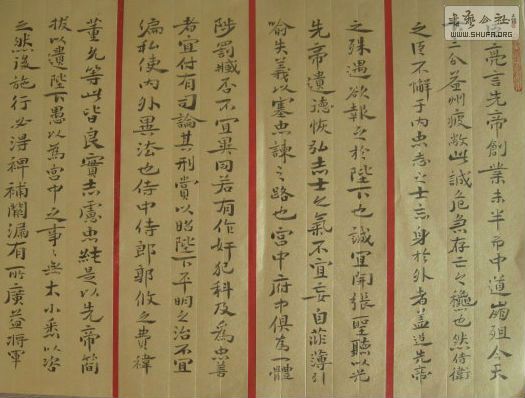 亮言先帝創業未半而中道崩殂今天
三分益州疲敝此誠危急存亡之穐也然侍衛
之臣不懈于内忠志之士忘身於外者盖追先帝
之殊遇欲報之於陛下也誠宜開張聖聽以光
先帝遺德恢弘志士之氣不宜妄自菲薄引
喻失義以塞忠諫之路也宮中府中俱為一體
陟罰臧否不宜異同若有作奸犯科及為忠善
者宜付有司論其刑賞以昭陛下平明之治不宜
偏私使内外異法也侍中侍郎郭攸之費禕
董允等此皆良實志慮忠純是以先帝簡
拔以遺陛下愚以為宮中之事々無大小悉以咨
之然後施行必得裨補闕漏有所廣益將軍
WWW.SHUFA.ORG